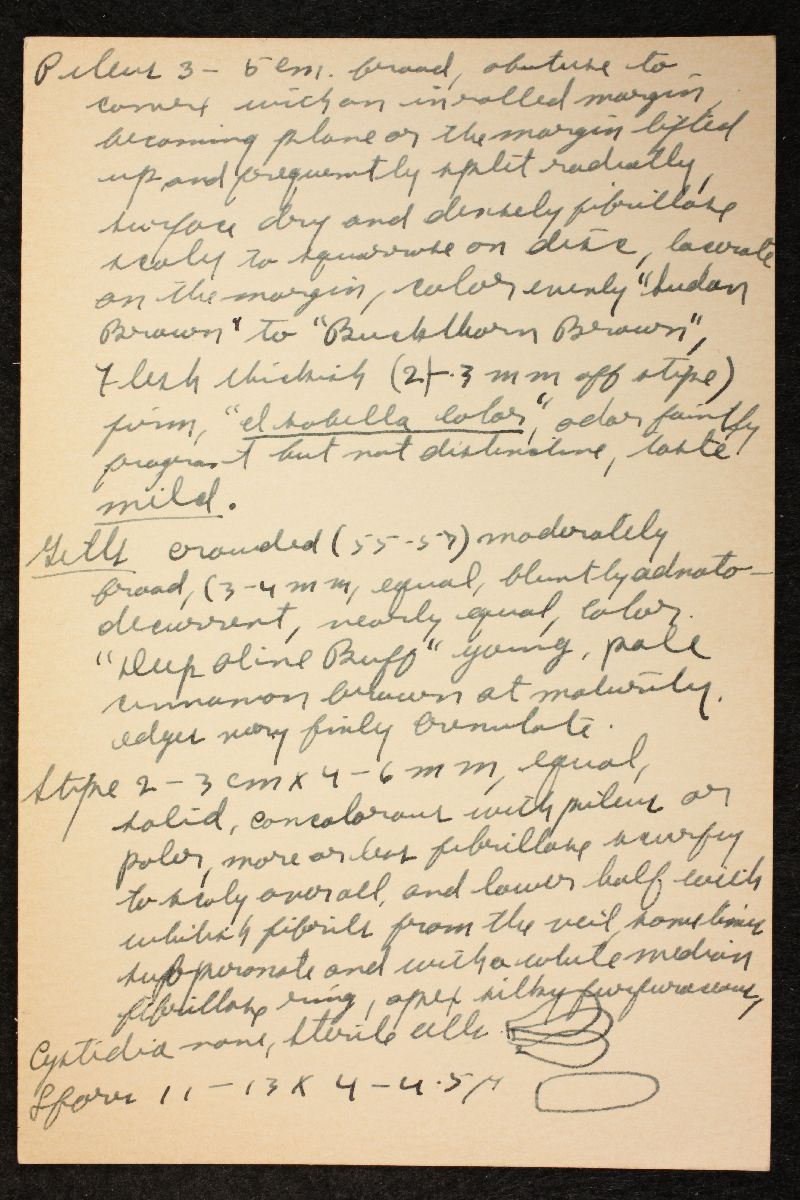 Pileus 3 – 5 cm. broad, obtuse to
convex with an inrolled margin,
becoming plane or the margin lifted
up, and frequently split radially,
surface dry and densely fibrillose
scaly to squarrose on disc, lacerate
on the margin, color evenly "Sudan
Brown" to "Buckthorn Brown",
Flesh thickish (2-3 mm off stipe)
firm, "Isabella color", odor faintly
fragrant but not distinctive, taste
mild.
Gills crowded (55-57) moderately
broad, (3-4 mm, equal, bluntly adnato-
decurrent, nearly equal, color
"Deep Olive Buff" young, pale
cinnamon brown at maturity.
edges very finly crenulate.
Stipe 2 – 3 cm x 4 – 6 mm, equal,
solid, concolorous with pileus or
paler, more or less fibrillose scurfy
to scaly over all, and lower half with
whitish fibrils from the veil, sometimes
subperonate and with a white median
fibrillose ring, apex silky furfuraceous,
Cystidia none, sterile cells
Spores 11 – 13 x 4 – 4.5 μ